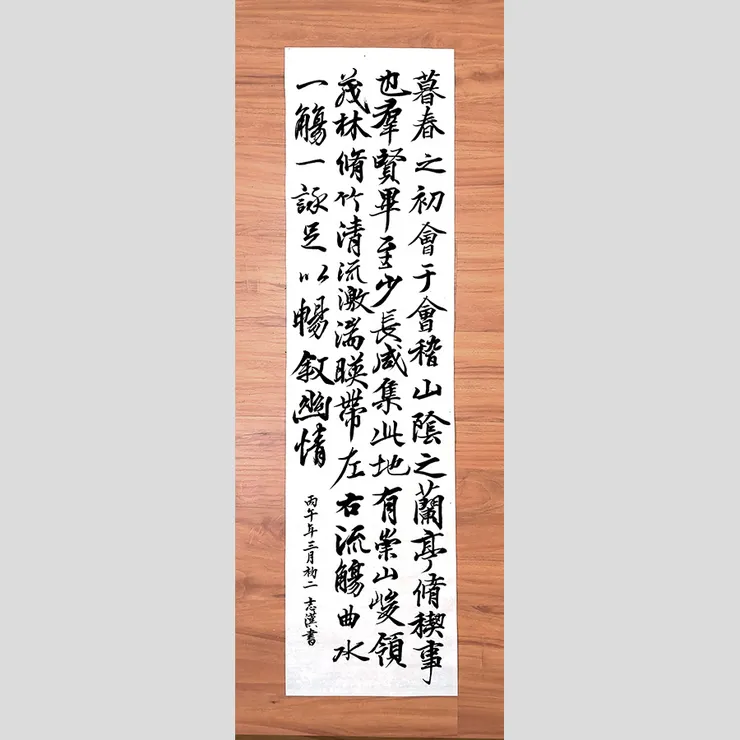 暮春之初會于會稽山陰之蘭亭脩稧事
也羣賢畢至少長咸集此地有崇山峻領
茂林脩竹清流激湍暎帶左右流觴曲水
一觴一詠足以暢敘幽情
丙午年三月初二 志漢書